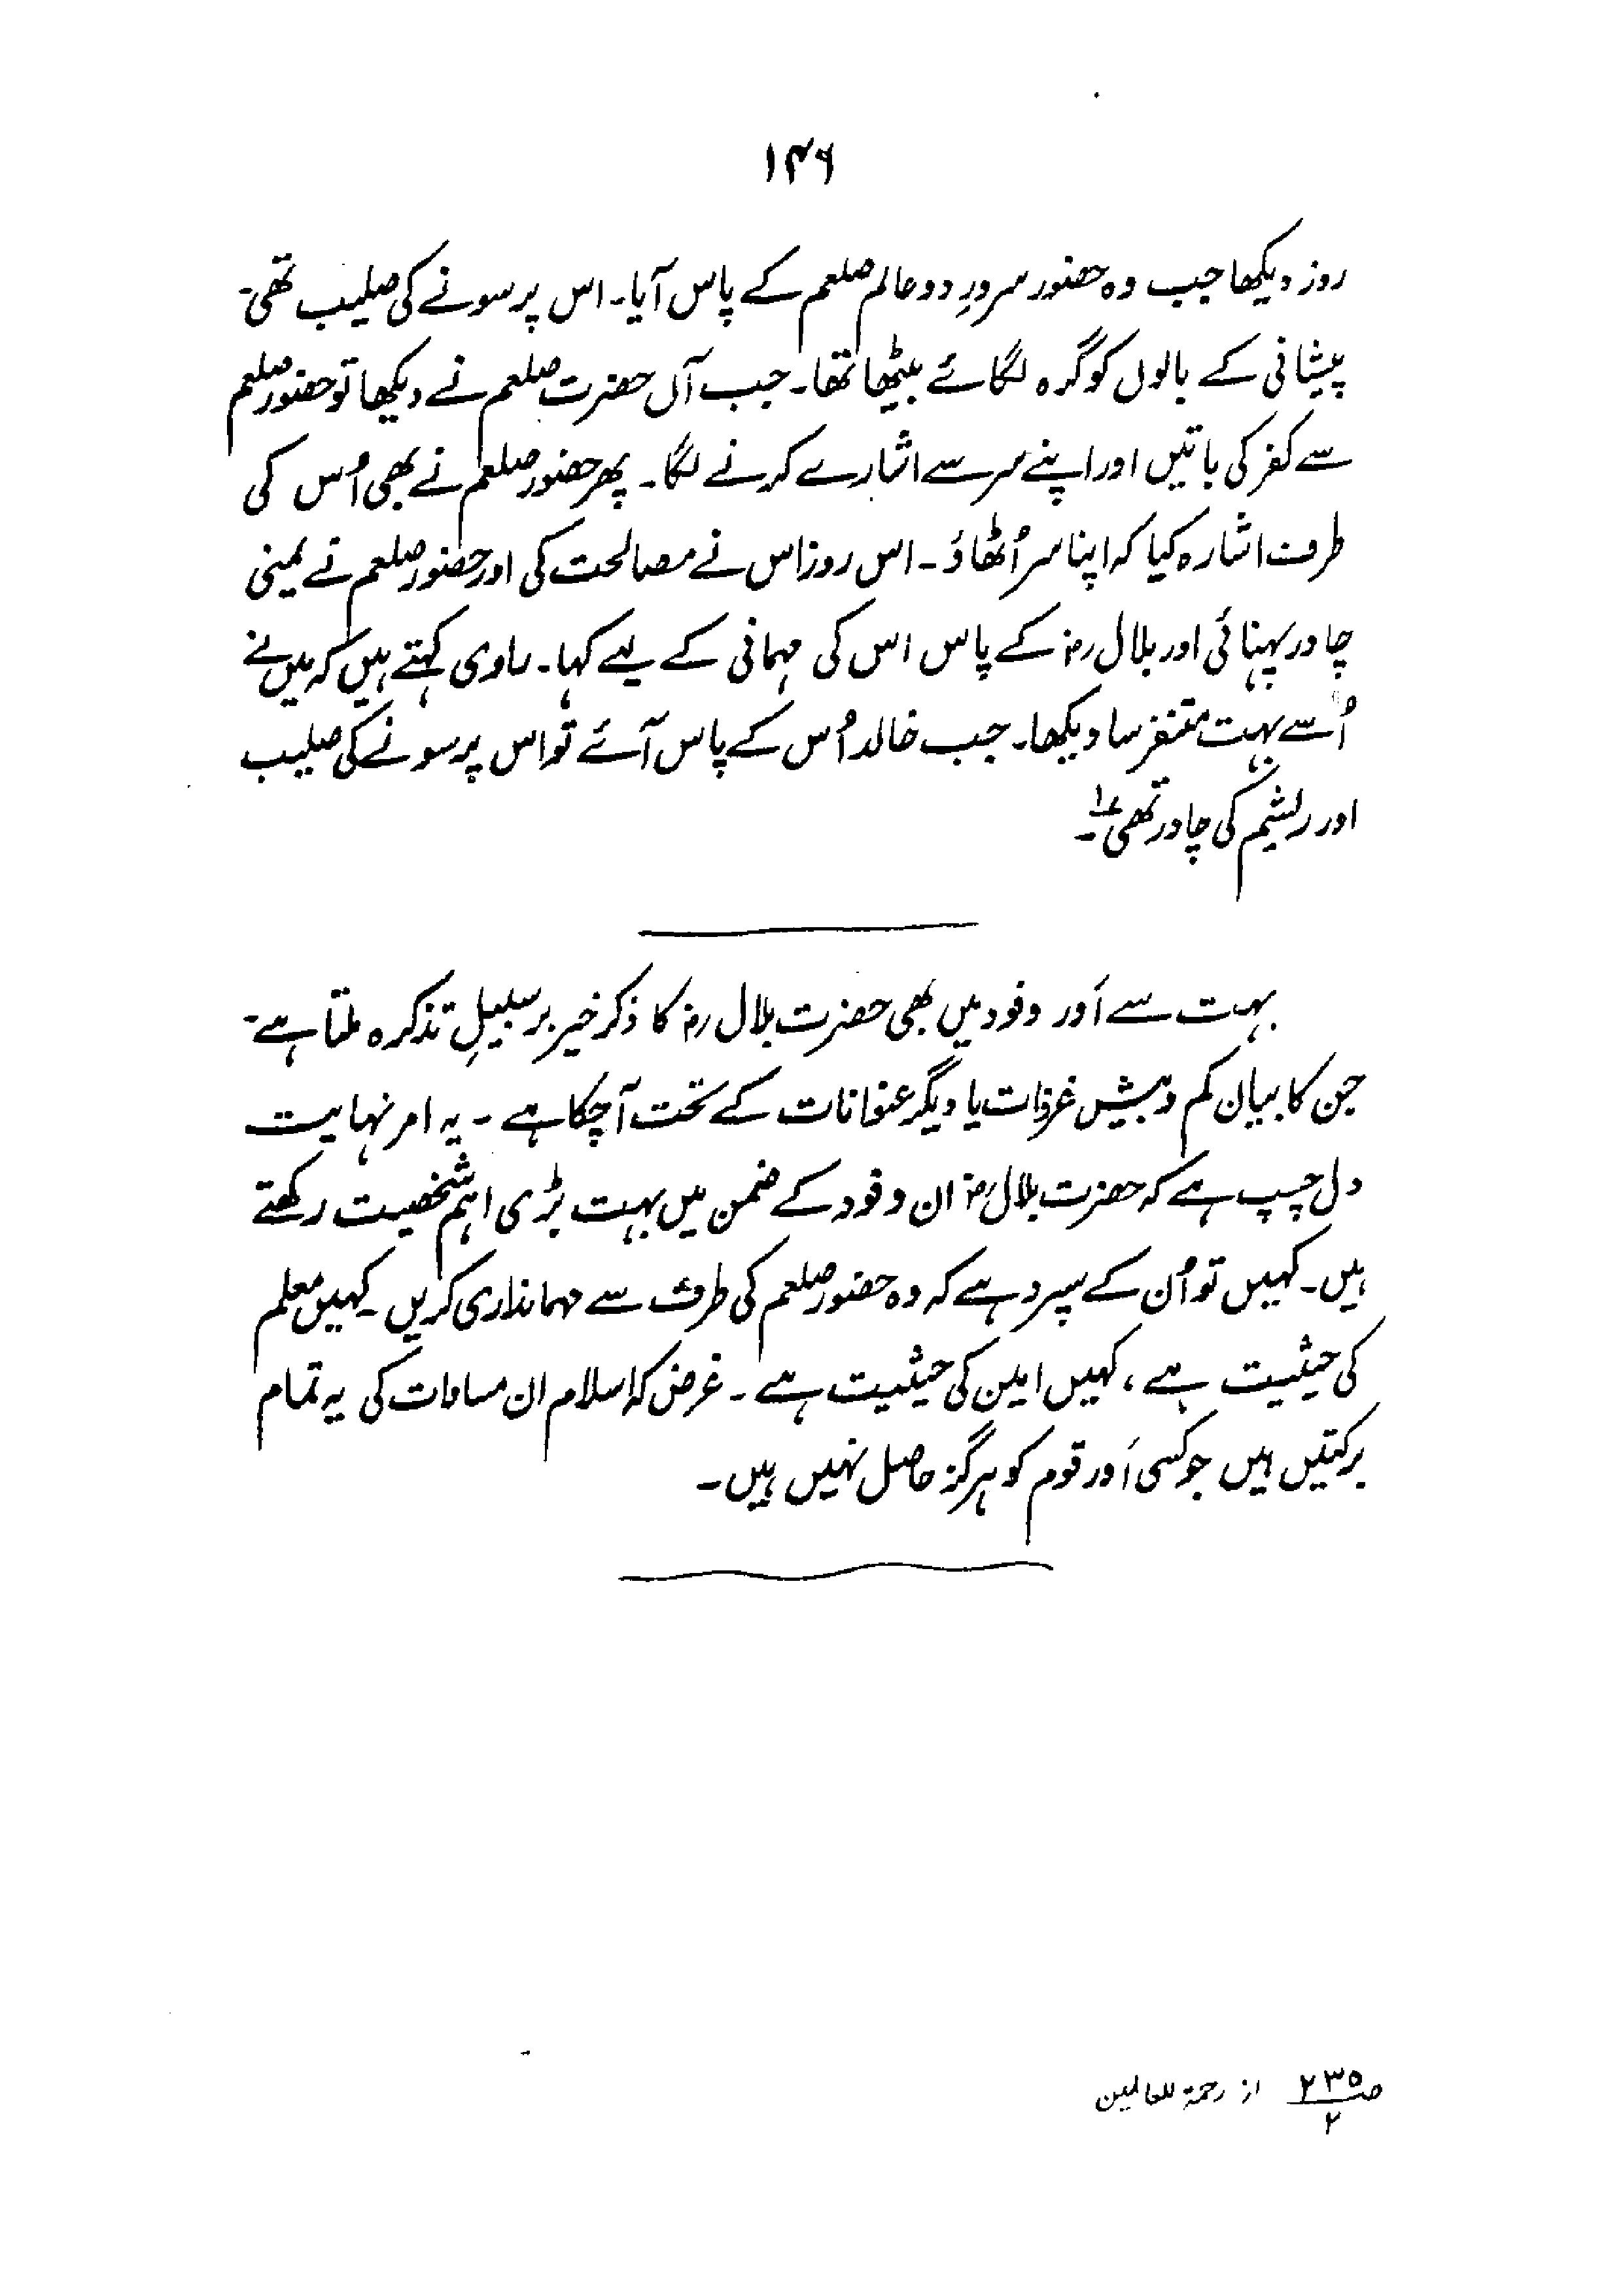 ۱۴۶
روز دیکھا جب وہ حضور سرورِ دو عالم صلعم کے پاس آیا۔ اس پر سونے کی صلیب تھی۔
پیشانی کے بالوں کو گرہ لگائے بیٹھا تھا۔ جب آں حضرت صلعم نے دیکھا تو حضور صلعم
سے کفر کی باتیں اور اپنے سر سے اشارے کرنے لگا۔ پھر حضور صلعم نے بھی اُس کی
طرف اشارہ کیا کہ اپنا سر اُٹھاؤ۔ اس روز اس نے مصالحت کی اور حضور صلعم نے یمنی
چادر پہنائی اور بلال رض کے پاس اس کی مہمانی کے لیے کہا۔ راوی کہتے ہیں کہ میں نے
اُسے بہت متنفر سا دیکھا۔ جب خالد اُس کے پاس آئے تو اس پر سونے کی صلیب
اور ریشم کی چادر تھی ؏۱۔
بہت سے اَور وفود میں بھی حضرت بلال رض کا ذکر خیر بر سبیلِ تذکرہ ملتا ہے۔
جن کا بیان کم و بیش غزوات یا دیگر عنوانات کے تحت آ چکا ہے۔ یہ امر نہایت
دل چسپ ہے کہ حضرت بلال رض ان وفود کے ضمن میں بہت بڑی اہم شخصیت رکھتے
ہیں۔ کہیں تو اُن کے سپرد ہے کہ وہ حضور صلعم کی طرف سے مہمانداری کریں۔ کہیں معلم
کی حیثیت ہے، کہیں امین کی حیثیت ہے۔ غرض کہ اسلام ان مساوات کی یہ تمام
برکتیں ہیں جو کسی اَور قوم کو ہرگز حاصل نہیں ہیں۔
صـ ۲۳۵/۲ از رحمۃ للعالمین